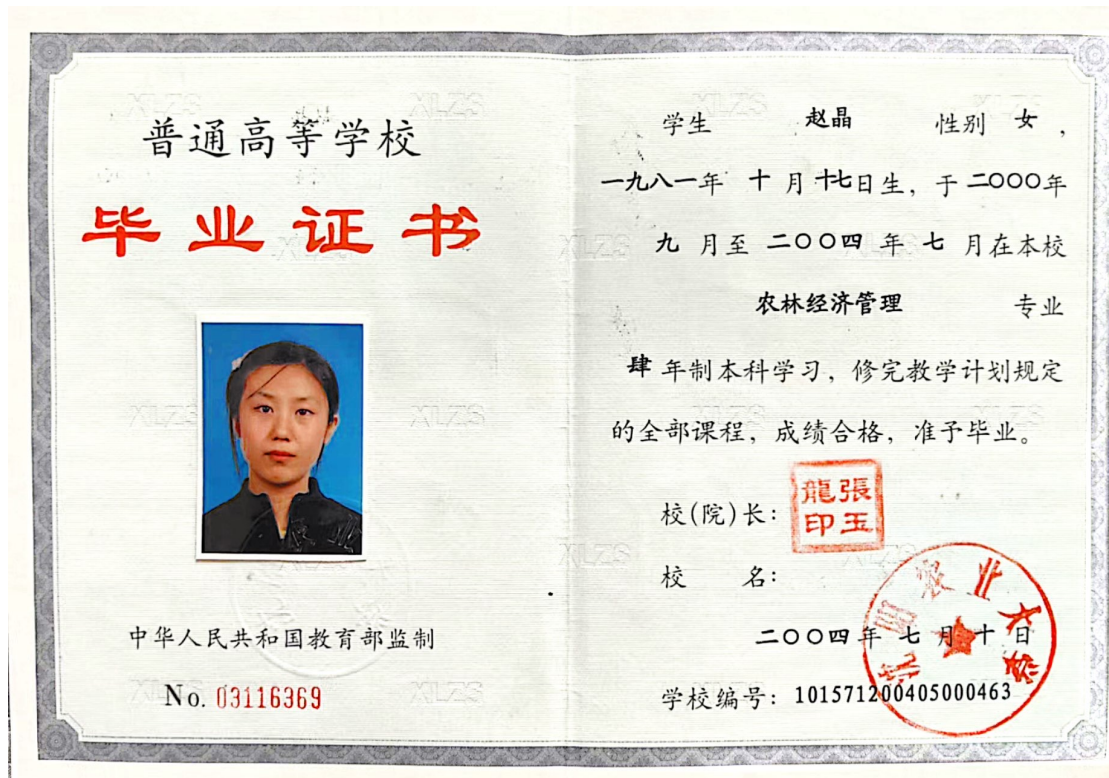 普通高等学校
毕业证书
中华人民共和国教育部监制
No. 03116369
学生 赵晶 性别 女，
一九八一年 十 月十七日生，于二〇〇〇年
九 月至 二〇〇四 年 七 月在本校
农林经济管理 专业
肆 年制本科学习，修完教学计划规定
的全部课程，成绩合格，准予毕业。
校(院)长：
張玉龍印
校 名：
沈阳农业大学
二〇〇四年 七 月 十 日
学校编号：101571200405000463
XLZS